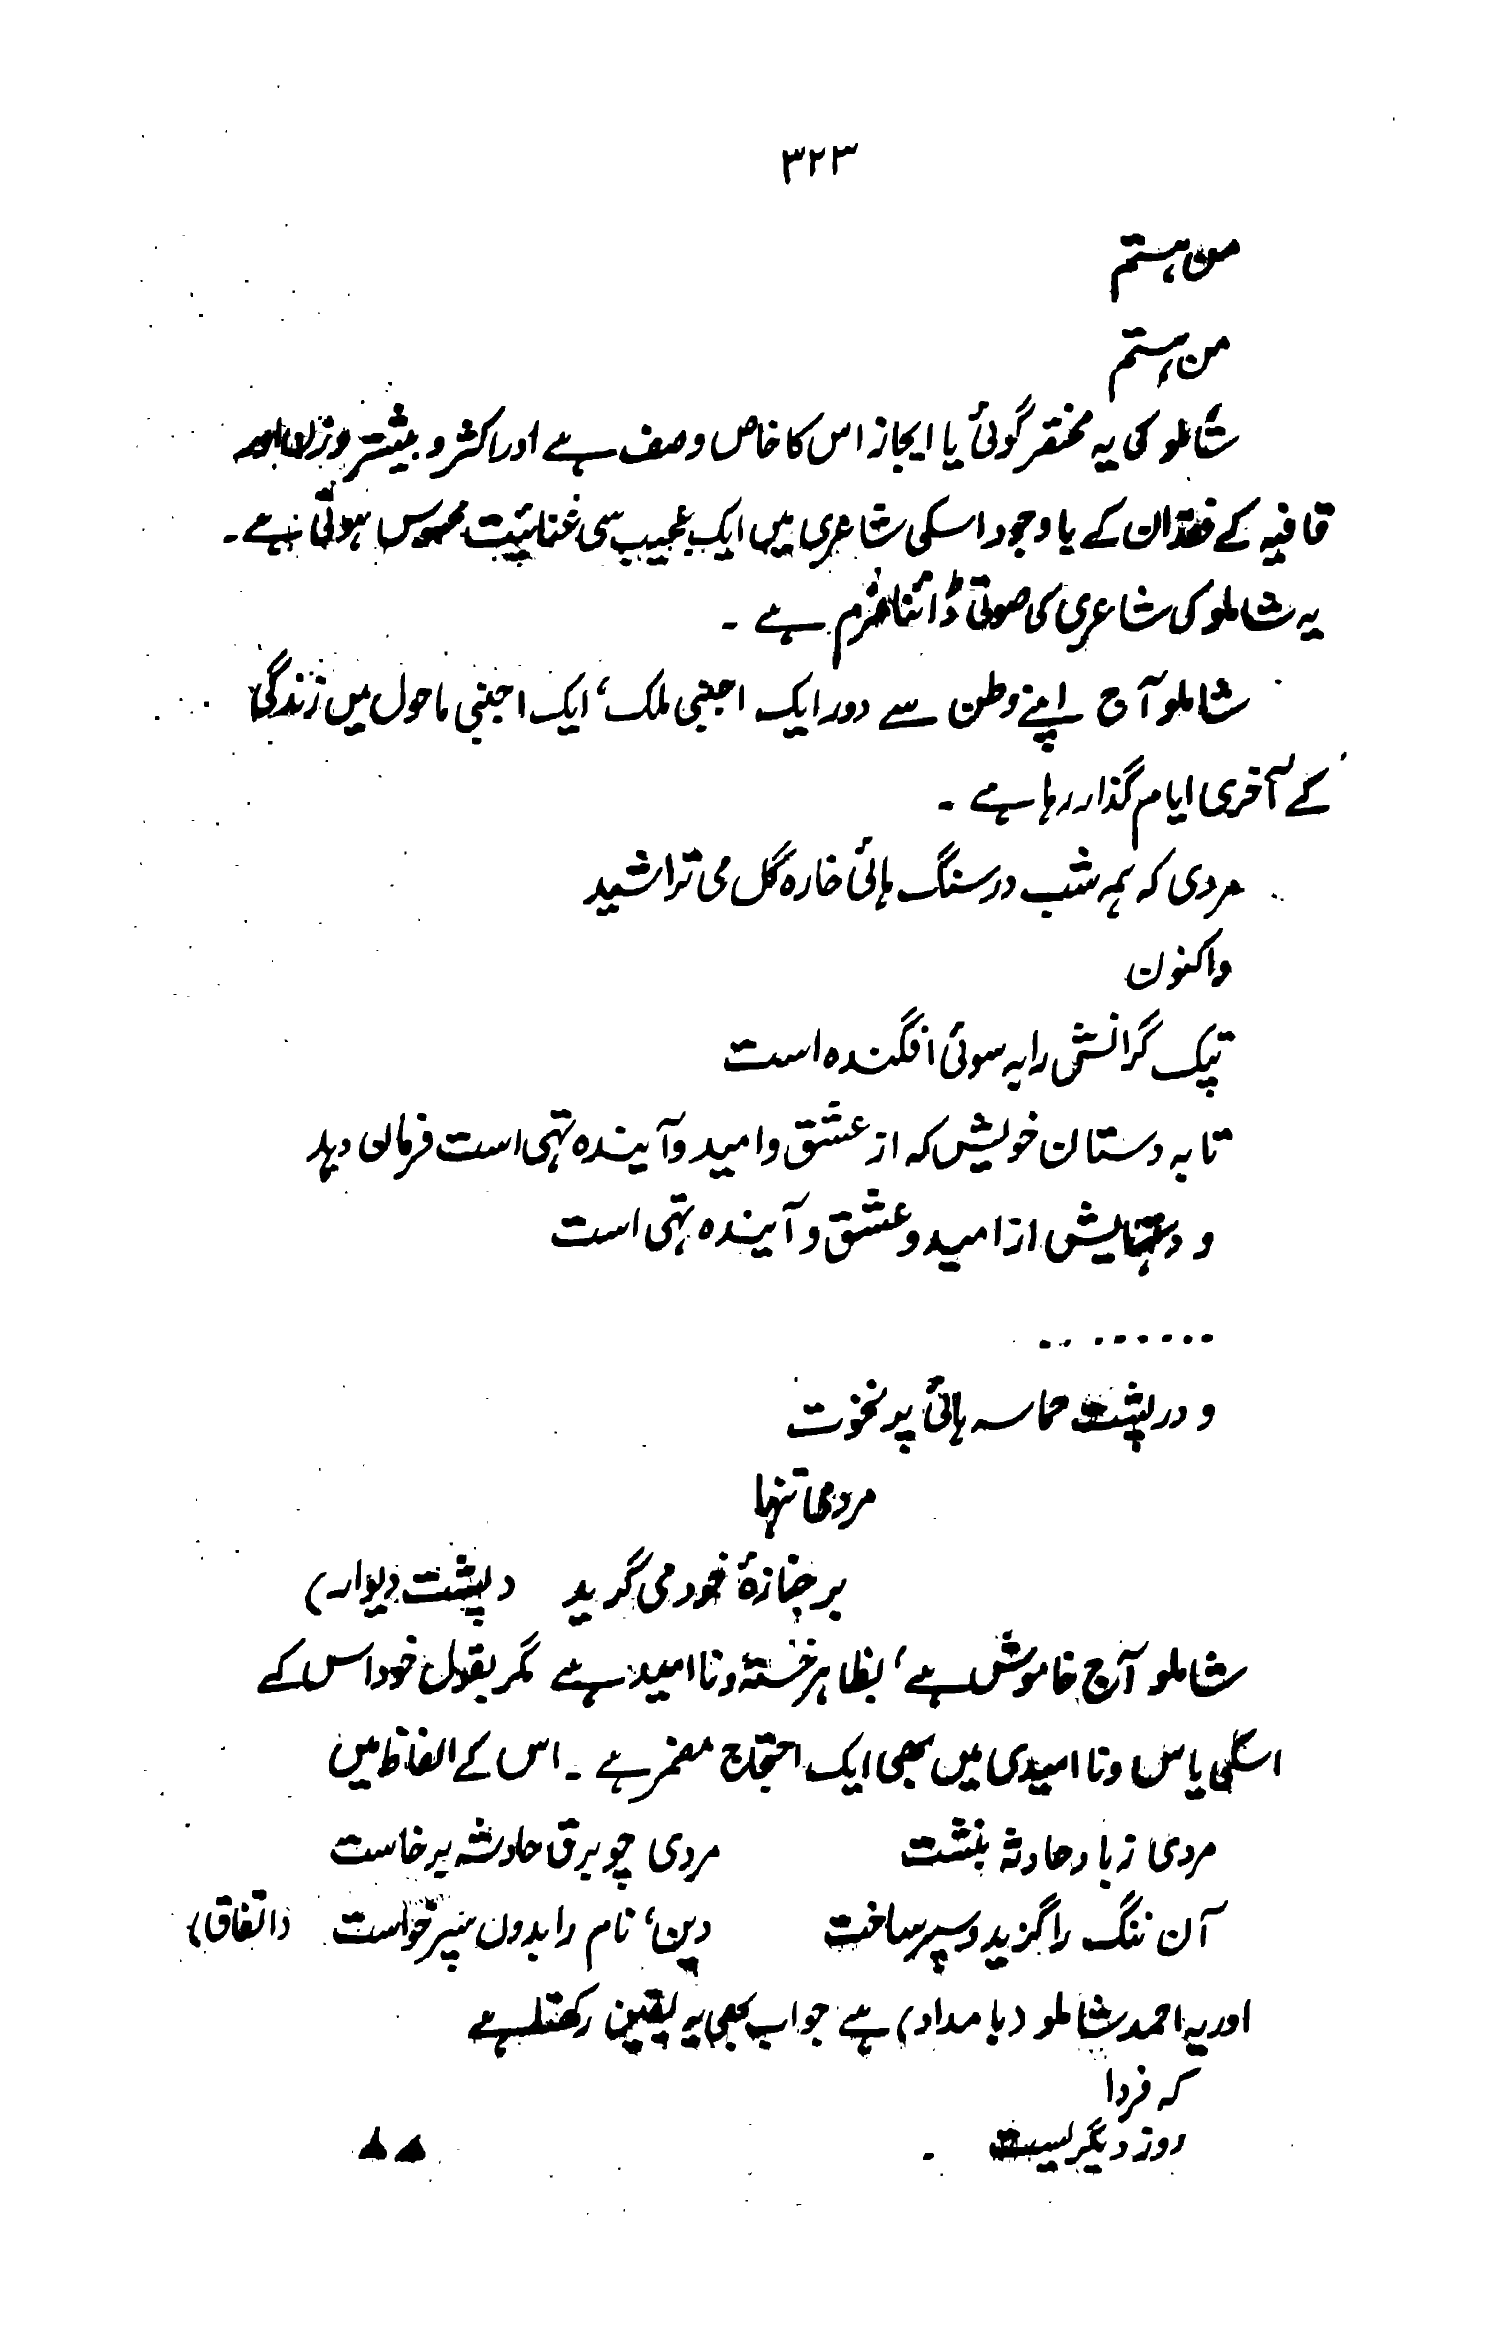 ۳۲۳
من ہستم
من ہستم
شاملو کی یہ مختصر گوئی یا ایجاز اس کا خاص وصف ہے اور اکثر و بیشتر وزن اور
قافیہ کے فقدان کے باوجود اسکی شاعری میں ایک عجیب سی غنائیت محسوس ہوتی ہے۔
یہ شاملو کی شاعری کی صوتی ڈائنامزم ہے ۔
شاملو آج اپنے وطن سے دور ایک اجنبی ملک، ایک اجنبی ماحول میں زندگی
کے آخری ایام گذار رہا ہے ۔
مردی کہ ہمہ شب در سنگ ہائی خارہ گل می تراشید
و اکنون
پتک گرانش را بہ سوئی افگندہ است
تا بہ دستان خویش کہ از عشق و امید و آیندہ تہی است فرمان دہد
و دستہایش از امید و عشق و آیندہ تہی است
.........
و در پشت حماسہ ہائی پر نخوت
مردمی تنہا
بر جنازۂ خود می گرید (پشت دیوار)
شاملو آج خاموش ہے، بظاہر خستہ و نا امید ہے مگر بقول خود اس کے
اسکی یاس و نا امیدی میں بھی ایک احتجاج مضمر ہے ۔ اس کے الفاظ میں
مردی ز باد حادثہ بنشت مردی چو برق حادثہ بر خاست
آن ننگ را گزید و سپر ساخت وین، نام را بدون سپر خواست (اتفاق)
اور یہ احمد شاملو (بامداد) ہے جو اب بھی یہ یقین رکھتا ہے
کہ فردا
روز دیگر لیست ۔